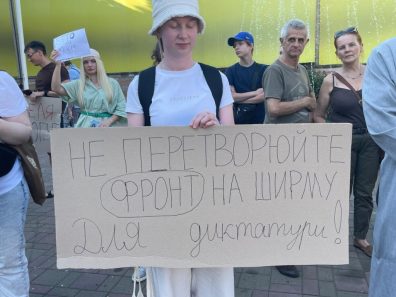 НЕ ПЕРЕТВОРЮЙТЕ
ФРОНТ НА ШИРМУ
Для диктатури!